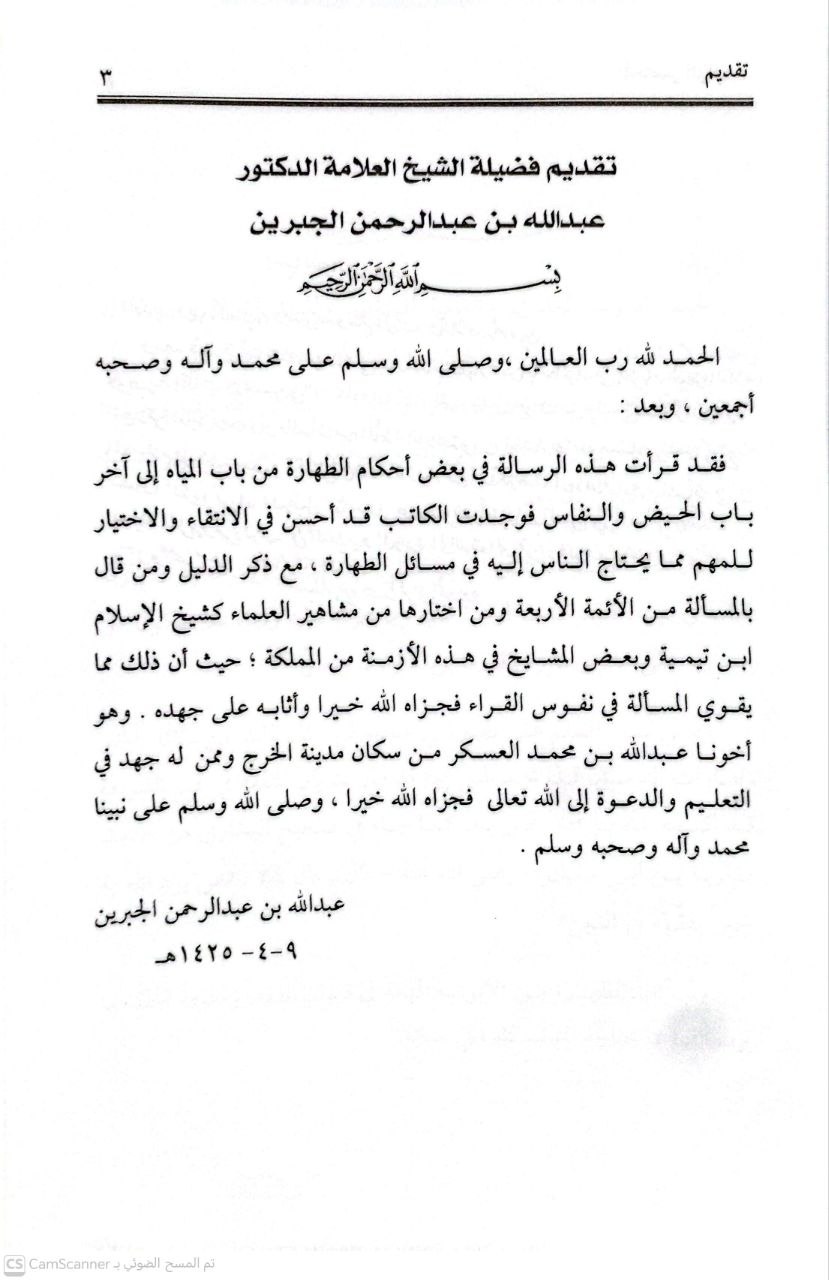 تقديم
٣
تقديم فضيلة الشيخ العلامة الدكتور
عبدالله بن عبدالرحمن الجبرين
بِسْمِ اللَّهِ الرَّحْمَٰنِ الرَّحِيمِ
الحمد لله رب العالمين ،وصلى الله وسلم على محمد وآله وصحبه
أجمعين ، وبعد :
فقد قرأت هذه الرسالة في بعض أحكام الطهارة من باب المياه إلى آخر
باب الحيض والنفاس فوجدت الكاتب قد أحسن في الانتقاء والاختيار
للمهم مما يحتاج الناس إليه في مسائل الطهارة ، مع ذكر الدليل ومن قال
بالمسألة من الأئمة الأربعة ومن اختارها من مشاهير العلماء كشيخ الإسلام
ابن تيمية وبعض المشايخ في هذه الأزمنة من المملكة ؛ حيث أن ذلك مما
يقوي المسألة في نفوس القراء فجزاه الله خيرا وأثابه على جهده . وهو
أخونا عبدالله بن محمد العسكر من سكان مدينة الخرج وممن له جهد في
التعليم والدعوة إلى الله تعالى فجزاه الله خيرا ، وصلى الله وسلم على نبينا
محمد وآله وصحبه وسلم .
عبدالله بن عبدالرحمن الجبرين
٩-٤- ١٤٢٥هـ
CS CamScanner تم المسح الضوئي بـ